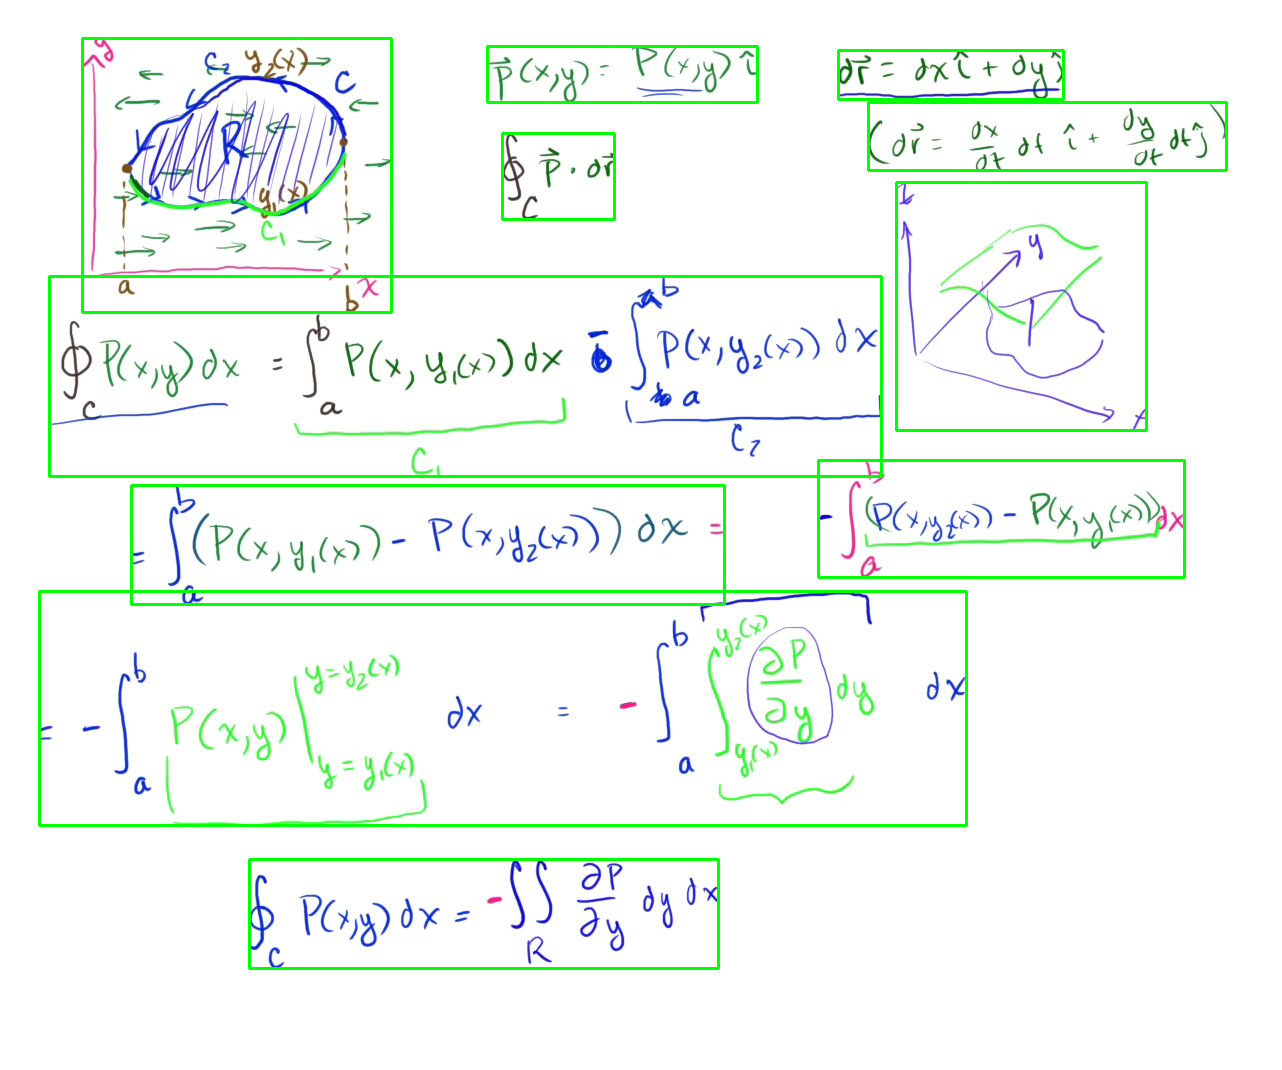 y
C₂ y₂(x)
C
R
y₁(x)
C₁
a b x
P⃗(x,y) = P(x,y) î
dr⃗ = dx î + dy ĵ
(dr⃗ = dx/dt dt î + dy/dt dt ĵ)
∮_C P⃗ · dr⃗
y
x
∮_C P(x,y) dx = ∫_a^b P(x, y₁(x)) dx - ∫_a^b P(x, y₂(x)) dx
C₁ C₂
= ∫_a^b (P(x, y₁(x)) - P(x, y₂(x))) dx = - ∫_a^b (P(x, y₂(x)) - P(x, y₁(x))) dx
= - ∫_a^b P(x,y) |_{y = y₁(x)}^{y = y₂(x)} dx = - ∫_a^b ∫_{y₁(x)}^{y₂(x)} ∂P/∂y dy dx
∮_C P(x,y) dx = - ∬_R ∂P/∂y dy dx